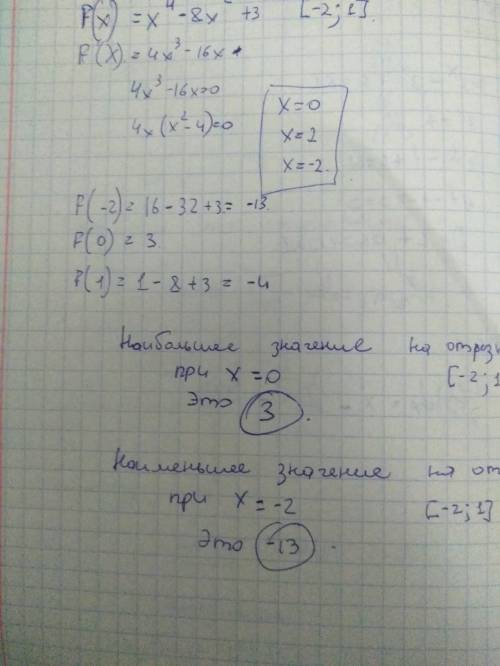 F(x) = x⁴ - 8x² + 3 [-2; 1].
F'(x) = 4x³ - 16x
4x³ - 16x = 0
4x(x² - 4) = 0
x = 0
x = 2
x = -2.
F(-2) = 16 - 32 + 3 = -13
F(0) = 3
F(1) = 1 - 8 + 3 = -4
Наибольшее значение на отрез
при x = 0 [-2; 1
Это 3.
Наименьшее значение на от
при x = -2 [-2; 1]
Это -13.